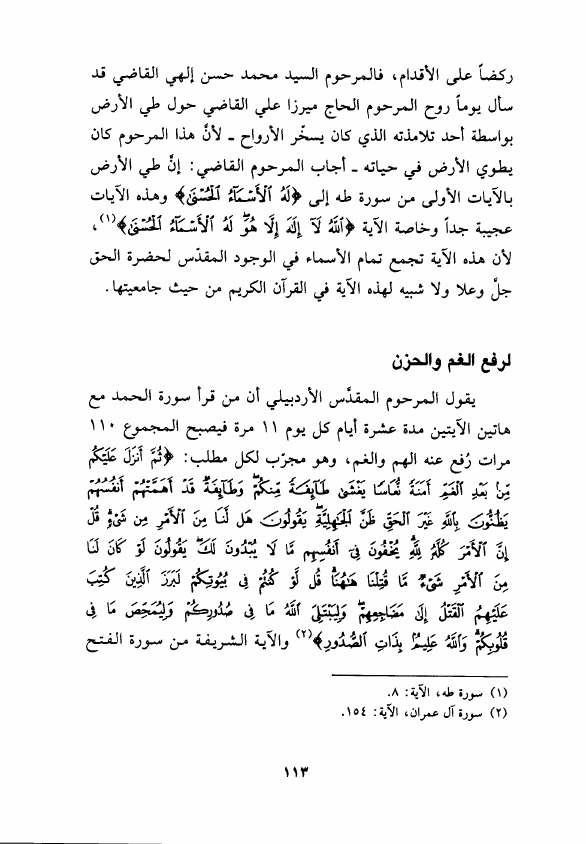 ركضاً على الأقدام، فالمرحوم السيد محمد حسن إلهي القاضي قد
سأل يوماً روح المرحوم الحاج ميرزا علي القاضي حول طي الأرض
بواسطة أحد تلامذته الذي كان يسخّر الأرواح ـ لأنَّ هذا المرحوم كان
يطوي الأرض في حياته ـ أجاب المرحوم القاضي: إنَّ طي الأرض
بالآيات الأولى من سورة طه إلى ﴿لَهُ ٱلْأَسْمَآءُ ٱلْحُسْنَىٰ﴾ وهذه الآيات
عجيبة جداً وخاصة الآية ﴿ٱللَّهُ لَآ إِلَٰهَ إِلَّا هُوَ ۖ لَهُ ٱلْأَسْمَآءُ ٱلْحُسْنَىٰ﴾(١)،
لأن هذه الآية تجمع تمام الأسماء في الوجود المقدّس لحضرة الحق
جلَّ وعلا ولا شبيه لهذه الآية في القرآن الكريم من حيث جامعيتها.
لرفع الغم والحزن
يقول المرحوم المقدَّس الأردبيلي أن من قرأ سورة الحمد مع
هاتين الآيتين مدة عشرة أيام كل يوم ١١ مرة فيصبح المجموع ١١٠
مرات رُفع عنه الهم والغم، وهو مجرّب لكل مطلب: ﴿ثُمَّ أَنزَلَ عَلَيْكُم
مِّنۢ بَعْدِ ٱلْغَمِّ أَمَنَةً نُّعَاسًا يَغْشَىٰ طَآئِفَةً مِّنكُمْ ۖ وَطَآئِفَةٌ قَدْ أَهَمَّتْهُمْ أَنفُسُهُمْ
يَظُنُّونَ بِٱللَّهِ غَيْرَ ٱلْحَقِّ ظَنَّ ٱلْجَٰهِلِيَّةِ ۖ يَقُولُونَ هَل لَّنَا مِنَ ٱلْأَمْرِ مِن شَىْءٍ ۗ قُلْ
إِنَّ ٱلْأَمْرَ كُلَّهُۥ لِلَّهِ ۗ يُخْفُونَ فِىٓ أَنفُسِهِم مَّا لَا يُبْدُونَ لَكَ ۖ يَقُولُونَ لَوْ كَانَ لَنَا
مِنَ ٱلْأَمْرِ شَىْءٌ مَّا قُتِلْنَا هَٰهُنَا ۗ قُل لَّوْ كُنتُمْ فِى بُيُوتِكُمْ لَبَرَزَ ٱلَّذِينَ كُتِبَ
عَلَيْهِمُ ٱلْقَتْلُ إِلَىٰ مَضَاجِعِهِمْ ۖ وَلِيَبْتَلِىَ ٱللَّهُ مَا فِى صُدُورِكُمْ وَلِيُمَحِّصَ مَا فِى
قُلُوبِكُمْ ۗ وَٱللَّهُ عَلِيمٌۢ بِذَاتِ ٱلصُّدُورِ﴾(٢) والآية الشريفة من سورة الفتح
(١) سورة طه، الآية: ٨.
(٢) سورة آل عمران، الآية: ١٥٤.
١١٣